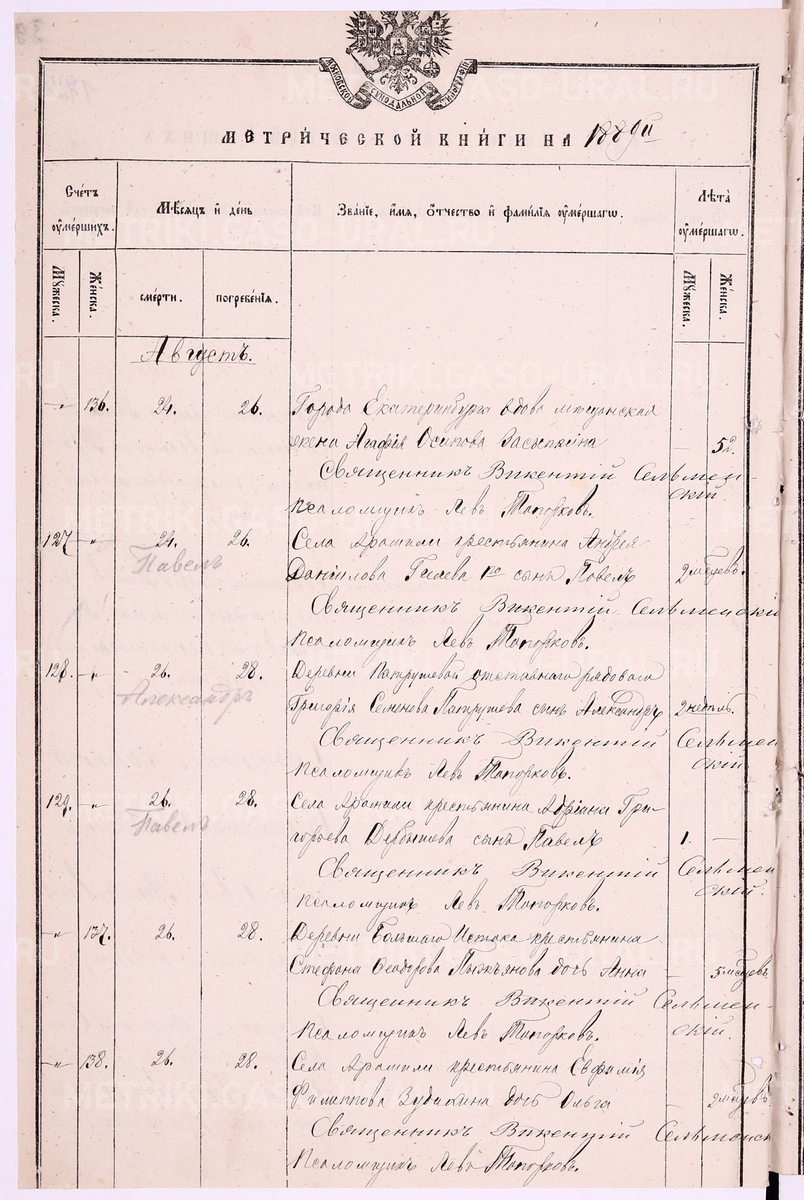 МОСКОВСКОЙ СѴНОДАЛЬНОЙ ТИПОГРАФІИ
МЕТРИ́ЧЕСКОЙ КНИ́ГИ НА 1889й
Сче́тъ ᲂу҆ме́ршихъ.
Мѣ́сяцъ и҆ де́нь
Зва́нїе, и҆́мя, ѻ҆́тчество и҆ фами́лїя ᲂу҆ме́ршагѡ.
Лѣ́та ᲂу҆ме́ршагѡ.
Мꙋ́жеска.
Же́нска.
сме́рти.
погребе́нїя.
Мꙋ́жеска.
Же́нска.
Августъ.
-"- 136. 24. 26. Города Екатеринбурга вдова мѣщанская
жена Агафія Осипова Засыпкина - 52.
Священникъ Викентій Сельменскій.
Псаломщикъ Левъ Топорковъ.
127 -"- 24. 26. Села Арамили крестьянина Андрея
Павелъ
Даніилова сынъ Павелъ 2 мѣсяцевъ.
Священникъ Викентій Сельменскій
Псаломщикъ Левъ Топорковъ.
128. -"- 26. 28. Деревни Патрушевой отставнаго рядоваго
Александръ
Григорія Семенова Патрушева сынъ Александръ 2 недѣль.
Священникъ Викентій Сельменскій
Псаломщикъ Левъ Топорковъ.
129. -"- 26. 28. Села Арамили крестьянина Адріана Гри-
Павелъ
горьева Дербышева сынъ Павелъ 1. -
Священникъ Викентій Сельменскій.
Псаломщикъ Левъ Топорковъ.
-"- 137. 26. 28. Деревни Большаго Истока крестьянина
Стефана Ѳеодорова Пыжьянова дочь Анна - 5 мѣсяцевъ
Священникъ Викентій Сельменскій.
Псаломщикъ Левъ Топорковъ.
-"- 138. 26. 28. Села Арамили крестьянина Евфимія
Филиппова Зубакина дочь Ольга - 2 мѣсяцевъ
Священникъ Викентій Сельменск
Псаломщикъ Левъ Топорковъ.